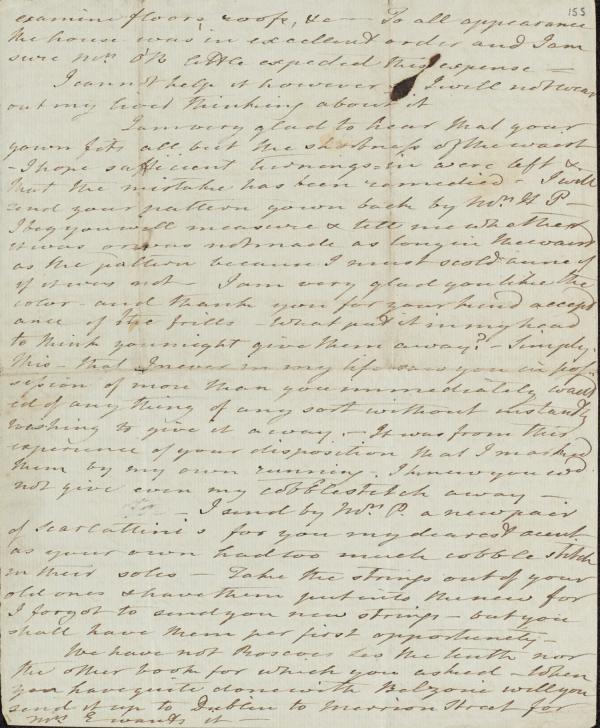 155
examine floors, roofs, &c — To all appearance
the house was in excellent order and I am
sure Mrs. O'B little expected this expense —
I cannot help it however & I will not wear
out my lived thinking about it
I am very glad to hear that your
gown fits all but the shortness of the waist
- I hope sufficient turnings-in were left &
that the mistake has been remedied - I will
send your pattern gown back by Mrs. H P—
I beg you will measure & tell me whether
it was or was not made as long in the waist
as the pattern because I must scold anne if
if it was not - I am very glad you like the
color - and thank you for your kind accept
ance of the frills - What put it in my head
to think you might give them away? - Simply
this - that I never in my life saw you in pos-
session of more than you immediately want
ed of any thing of any sort without instantly
washing to give it away. - It was from this
experience of your disposition that I marked
them by my own running. I knew you wd.
not give even my cobblestitch away —
- I send by Mrs. P. a new pair
of Scarlattini's for you my dearest aunt
as your own had too much cobble stitch
in their soles - Take the strings out of your
old ones & have them put into the new for
I forgot to send you new strings - but you
shall have them per first opportunity -
We have not Roscoes Leo the tenth nor
the other book for which you asked - When
you have quite done with will you
send it up to Dublin to Merrion Street for
Mrs E wants it —